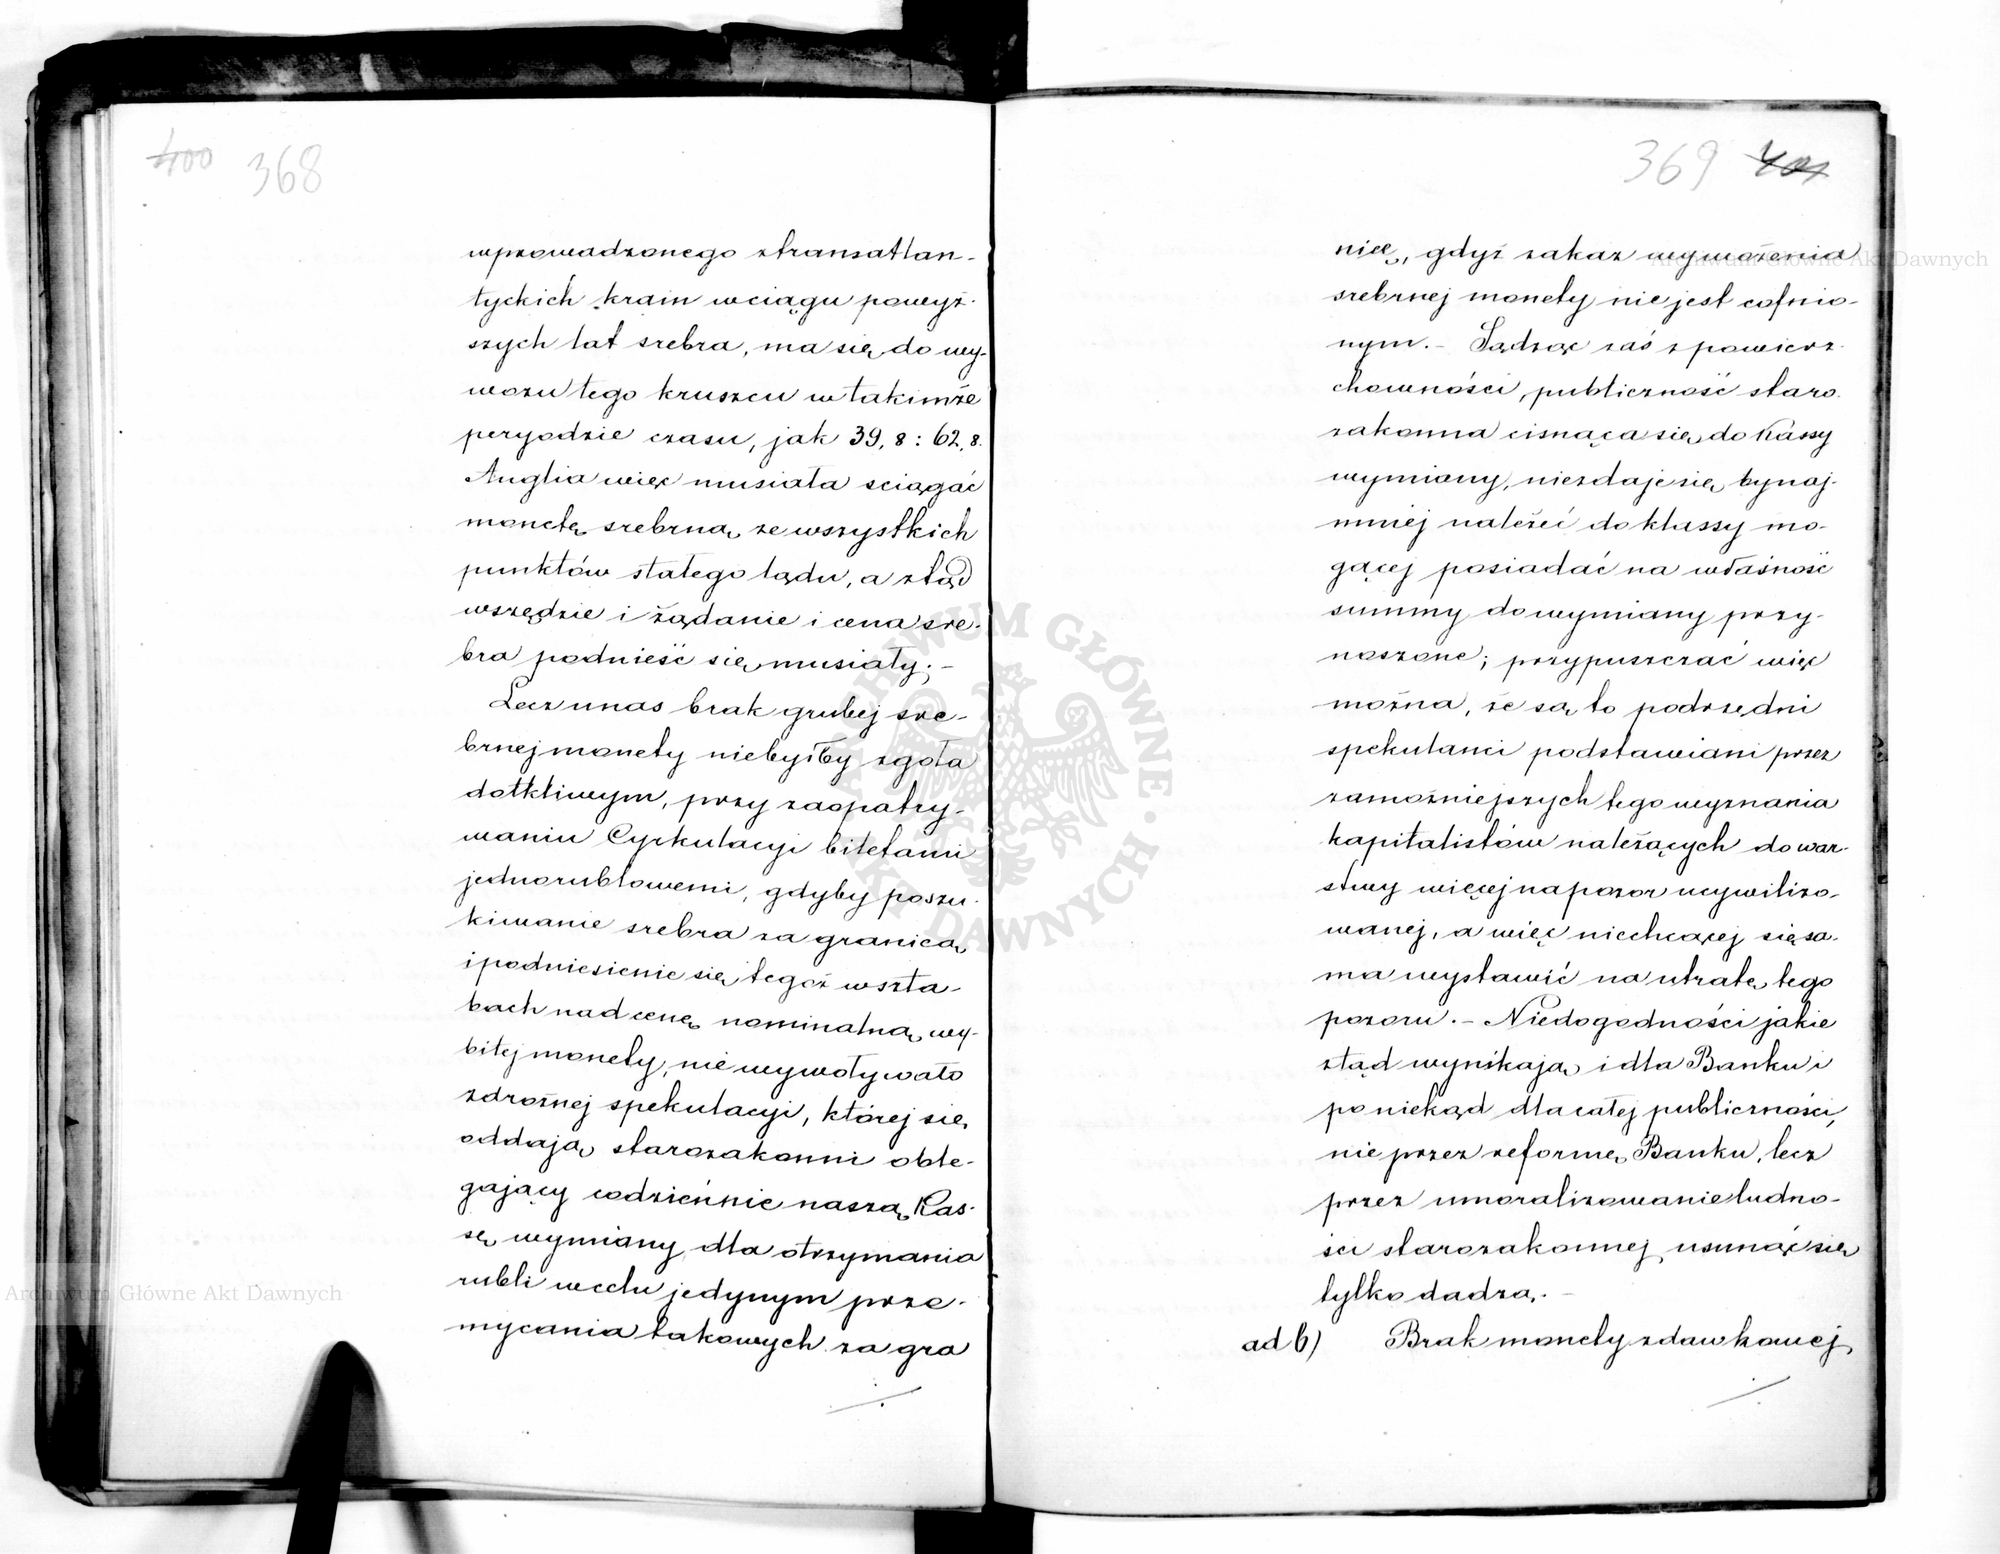 400 368
wprowadzonego ztransatlan-
tyckich krain wciągu powyż-
szych lat srebra, ma się do wy-
wozu tego kruszcu w takimże
peryodzie czasu, jak 39,8 : 62,8.
Anglia więc musiała sciągać
monetę srebrną ze wszystkich
punktów stałego lądu, a ztąd
wszędzie i żądanie i cena sre-
bra podnieść się musiały. -
Lecz unas brak grubej sre-
brnej monety niebyłby zgoła
dotkliwym, przy zaopatry-
waniu Cyrkulacyi biletami
jednorublowemi, gdyby poszu-
kiwanie srebra za granicą
i podniesienie się tegoż wszta-
bach nad cenę nominalną wy-
bitej monety, nie wywoływało
zdrożnej spekulacyi, której się
oddają starozakonni oble-
gający codziennie naszą Kas-
sę wymiany dla otrzymania
rubli wcelu jedynym prze-
mycania takowych za gra
369 401
nicę, gdyż zakaz wywożenia
srebrnej monety nie jest cofnio-
nym. - Sądząc zaś z powierz-
chowności, publiczność staro-
zakonna cisnąca się do Kassy
wymiany, niezdaje się bynaj-
mniej należeć do klassy mo-
gącej posiadać na własność
summy do wymiany przy-
noszone; przypuszczać więc
można, że są to podrzędni
spekulanci podstawiani przez
zamożniejszych tego wyznania
kapitalistów należących do war-
stwy więcej na pozór ucywilizo-
wanej, a więc niechcącej się sa-
ma wystawić na utratę tego
pozoru. - Niedogodności jakie
ztąd wynikają i dla Banku i
poniekąd dla całej publiczności,
nie przez reformę Banku, lecz
przez umoralizowanie ludno-
ści starozakonnej usunąć się
tylko dadzą. -
ad b) Brak monety zdawkowej
Archiwum Główne Akt Dawnych
Archiwum Główne Akt Dawnych
ARCHIWUM GŁÓWNE AKT DAWNYCH